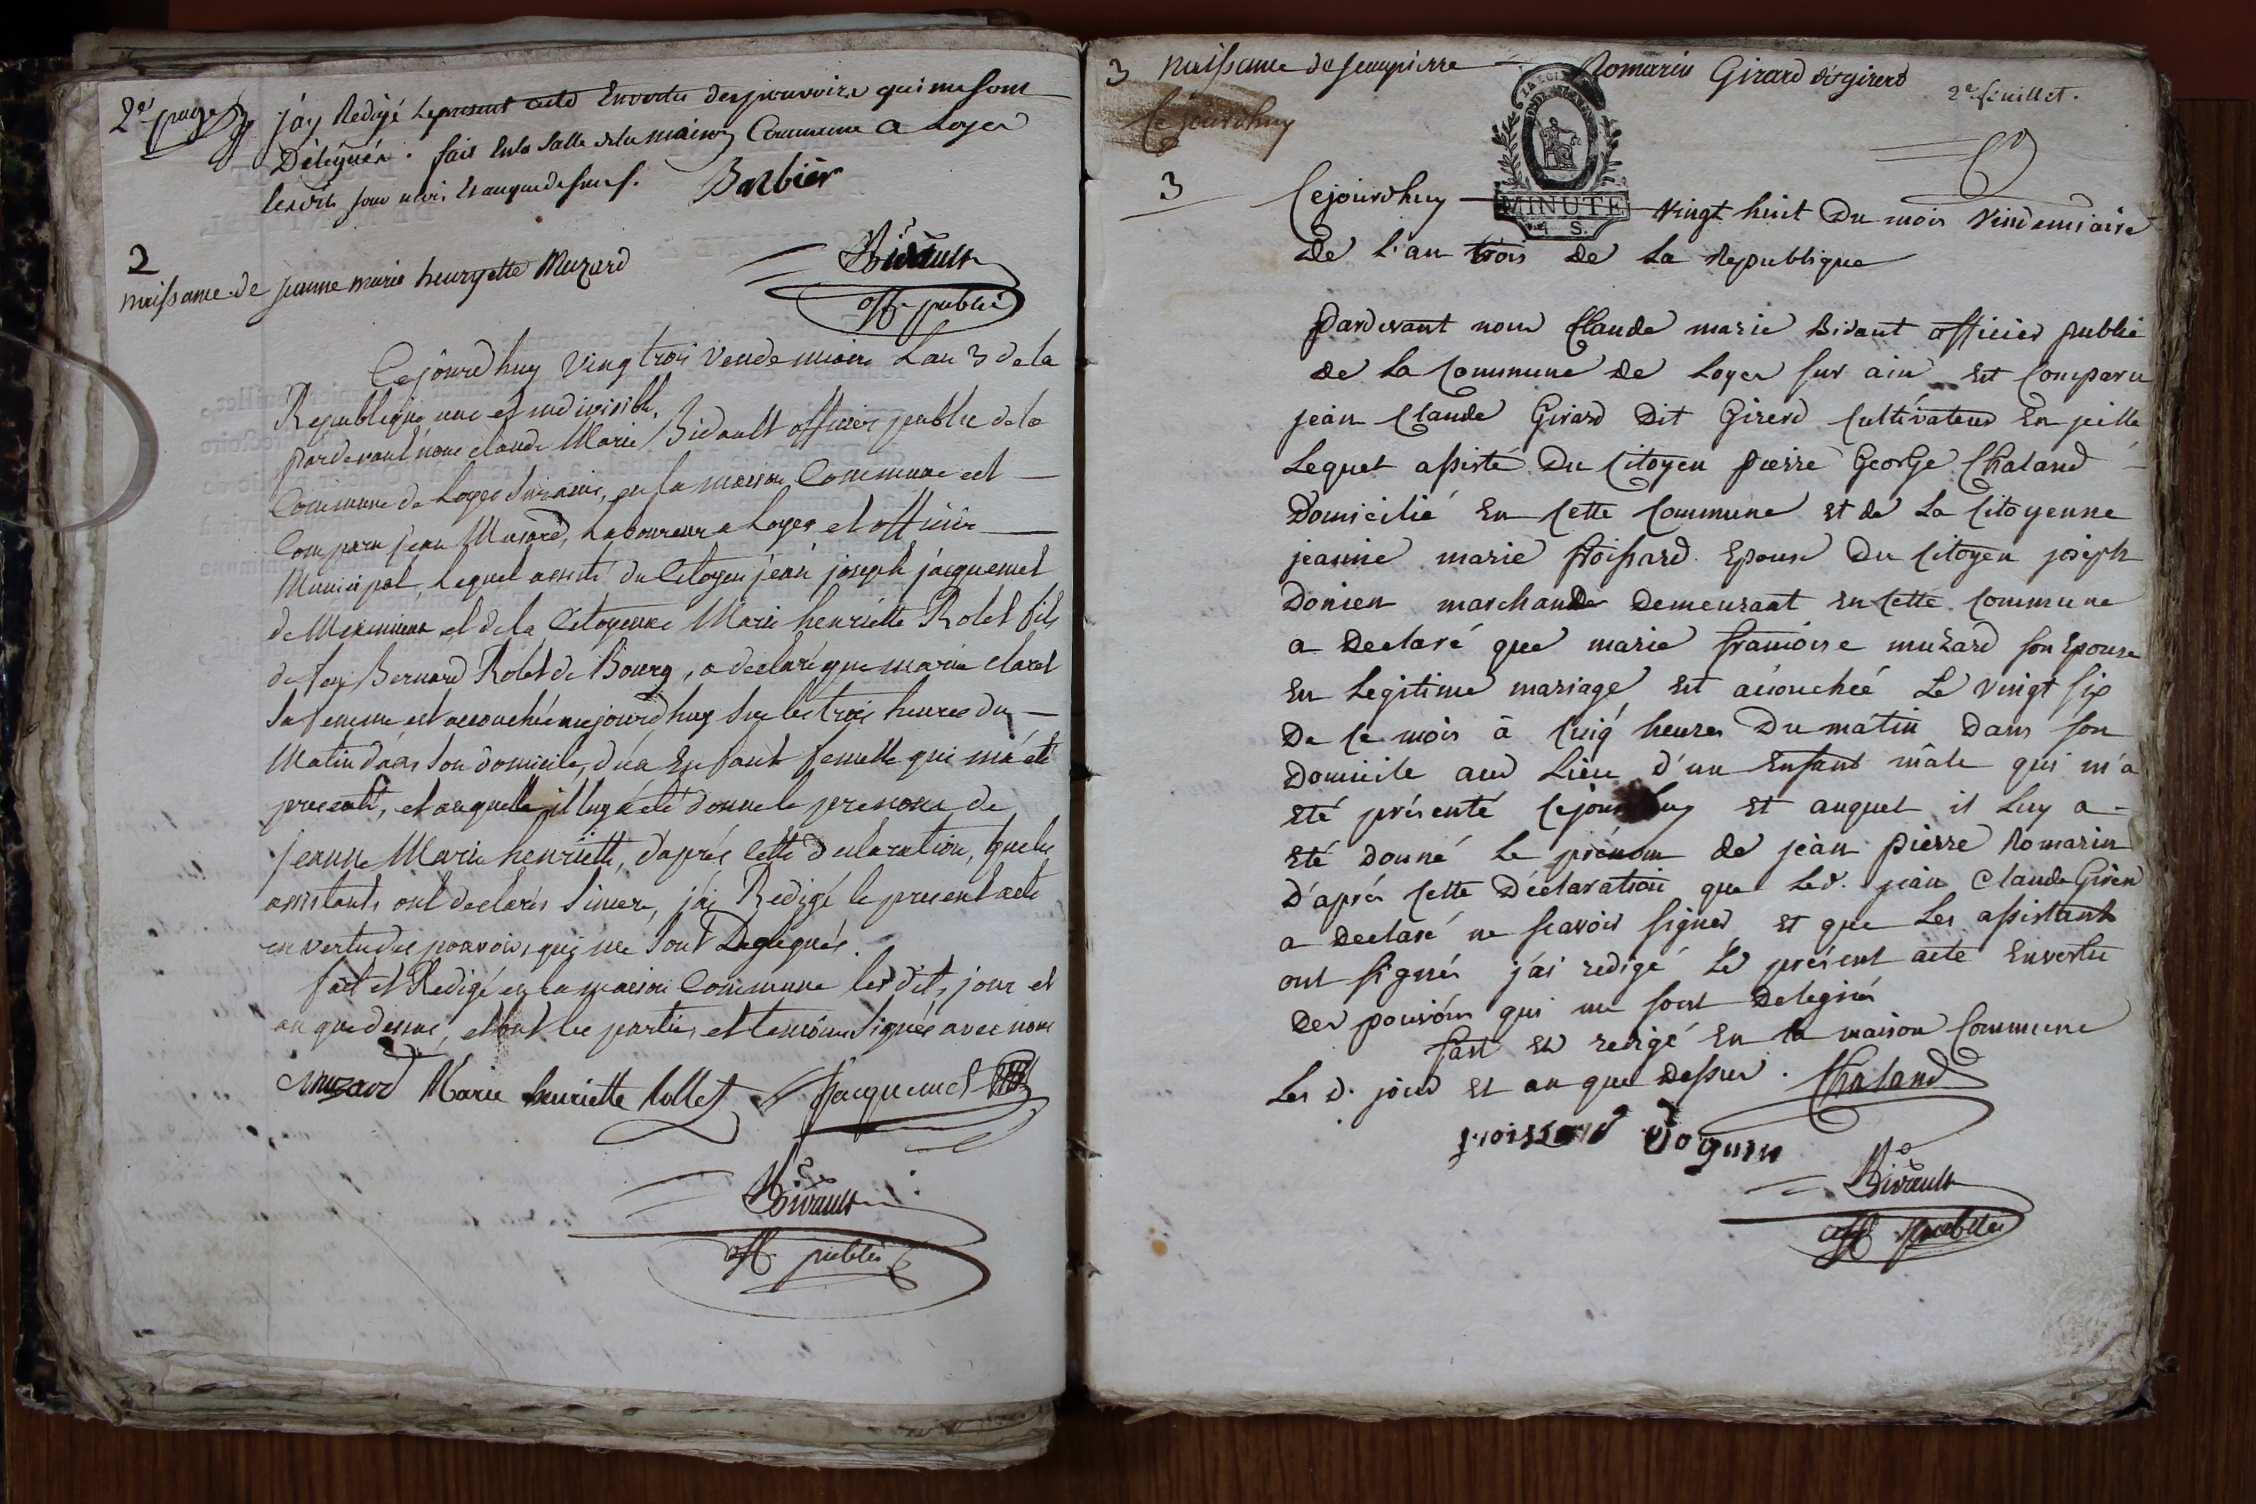 2e page
j'ay Redigé le present acte En vertu des pouvoirs qui me sont
Délégués. fait En la Salle de la maison Commune a Loyes
les dits jour mois Et an que dessus. Barbier
Bidault
off. public
2
naissance de jeanne marie henryette Muzard
Cejourd'huy vingt trois vendemiaire L'an 3 de la
Republique une et indivisible,
pardevant nous claude Marie Bidault officier public de la
Commune de Loyes Sur ain, en la maison Commune est
Comparu jean Musard, Laboureur a Loyes et officier
Municipal, Lequel assisté du Citoyen jean joseph jacquemet
de et de la Citoyenne Marie henriette Rolet fille
de feu Bernard Rolet de Bourg, a declaré que marie claret
Sa femme est accouchée cejourd'huy Sur les trois heures du
Matin dans Son domicile, d'un Enfant femelle qui m'a été
presenté, et auquelle il luy a été donné le prenom de
jeanne Marie henriette, d'après cette declaration, que les
assistants ont declarés Sincere, j'ai Redigé le present acte
en vertu des pouvoirs qui me Sont Delegués.
fait et Redigé en la maison Commune les dits jour et
an que dessus, et ont les parties et temoins Signés avec nous
Muzard Marie henriette Rollet Jacquemet
Bidault
off. public
3 naissance de jean pierre Romarin Girard dit girerd 2e feuillet.
Cejourdhuy
LA LOI
MINUTE
4 S.
3
Cejourdhuy vingt huit Du mois vindemiaire
De L'an trois De La Republique
Pardevant nous Claude marie Bidaut officier public
De La Commune De Loyes sur ain Est Comparu
jean Claude Girard Dit Girerd Cultivateur En
Lequel assisté Du Citoyen pierre George Chaland
Domicilié En Cette Commune Et de La Citoyenne
jeanne marie froissard Epouse Du Citoyen joseph
marchande Demeurant En Cette Commune
a Declaré que marie françoise muzard son Epouse
En Legitime mariage, Est accouchéé Le vingt six
De Ce mois à Cinq heures Du matin Dans son
Domicile aud Lieu D'un Enfant mâle qui m'a
Eté présenté Cejourdhuy Et auquel il Luy a
Eté Donné Le prénom de jean pierre Romarin
D'après Cette Déclaration que Led. jean Claude Girerd
a Declaré ne scavoir signer Et que Les assistants
ont signés j'ai redigé Le présent acte En vertu
Des pouvoirs qui me sont Delegués
fait Et redigé En la maison Commune
Les D. jour Et an que Dessus. Chaland
froissard
Bidault
off. public